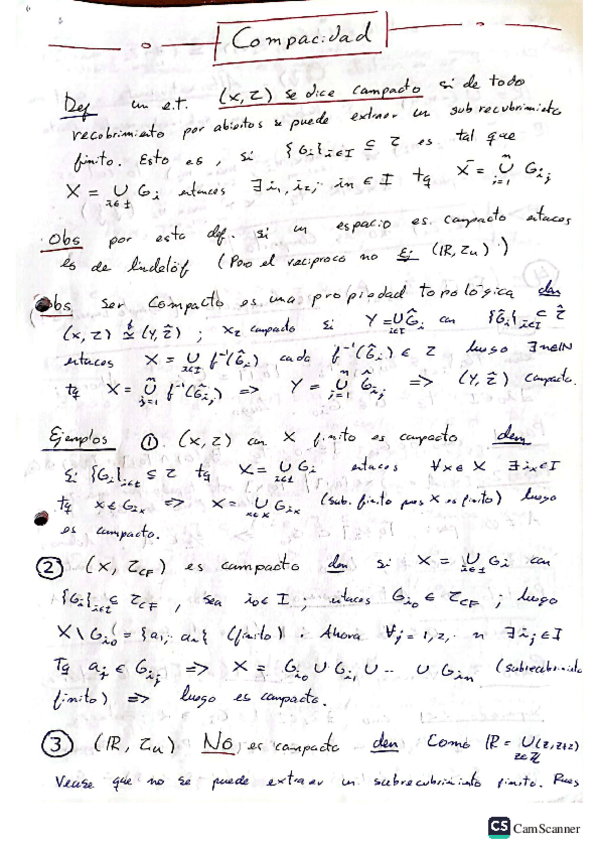 Compacidad
Def un e.t. (X,τ) se dice compacto si de todo
recobrimiento por abiertos se puede extraer un subrecubrimiento
finito. Esto es, si {Gi}i∈I ⊆ τ es tal que
X = ∪i∈I Gi entonces ∃ i1, i2, in ∈ I tq X = ∪j=1^n Gij
Obs por esta def. si un espacio es compacto entonces
es de lindelöf (Pero el reciproco no Ej (IR, τu).)
Obs ser compacto es una propiedad topológica dem
(X,τ) ≅f (Y,τ̂) ; Xτ compacto si Y = ∪i∈I Ĝi con {Ĝi}i∈I ⊆ τ̂
entonces X = ∪i∈I f⁻¹(Ĝi) cada f⁻¹(Ĝi) ∈ τ luego ∃n∈IN
tq X = ∪j=1^n f⁻¹(Ĝij) => Y = ∪j=1^n Ĝij => (Y,τ̂) compacto.
Ejemplos ① (X,τ) con X finito es compacto dem
Si {Gi}i∈I ⊆ τ tq X = ∪i∈I Gi entonces ∀x∈X ∃ix∈I
tq x∈Gix => X = ∪x∈X Gix (sub. finito pues X es finito) luego
es compacto.
② (X, τCF) es compacto dem si X = ∪i∈I Gi con
{Gi}i∈I ⊆ τCF , sea i0∈I ; entonces Gi0 ∈ τCF ; luego
X\Gi0 = {a1, an} (finito) . Ahora ∀j = 1,2, n ∃ij∈I
Tq aj ∈ Gij => X = Gi0 ∪ Gi1 ∪ .. ∪ Gin (subrecubrimiento
finito) => luego es compacto.
③ (IR, τu) No es compacto dem Como IR = ∪z∈Z (z, z+2)
Vease que no se puede extraer un subrecubrimiento finito. Pues
CS CamScanner